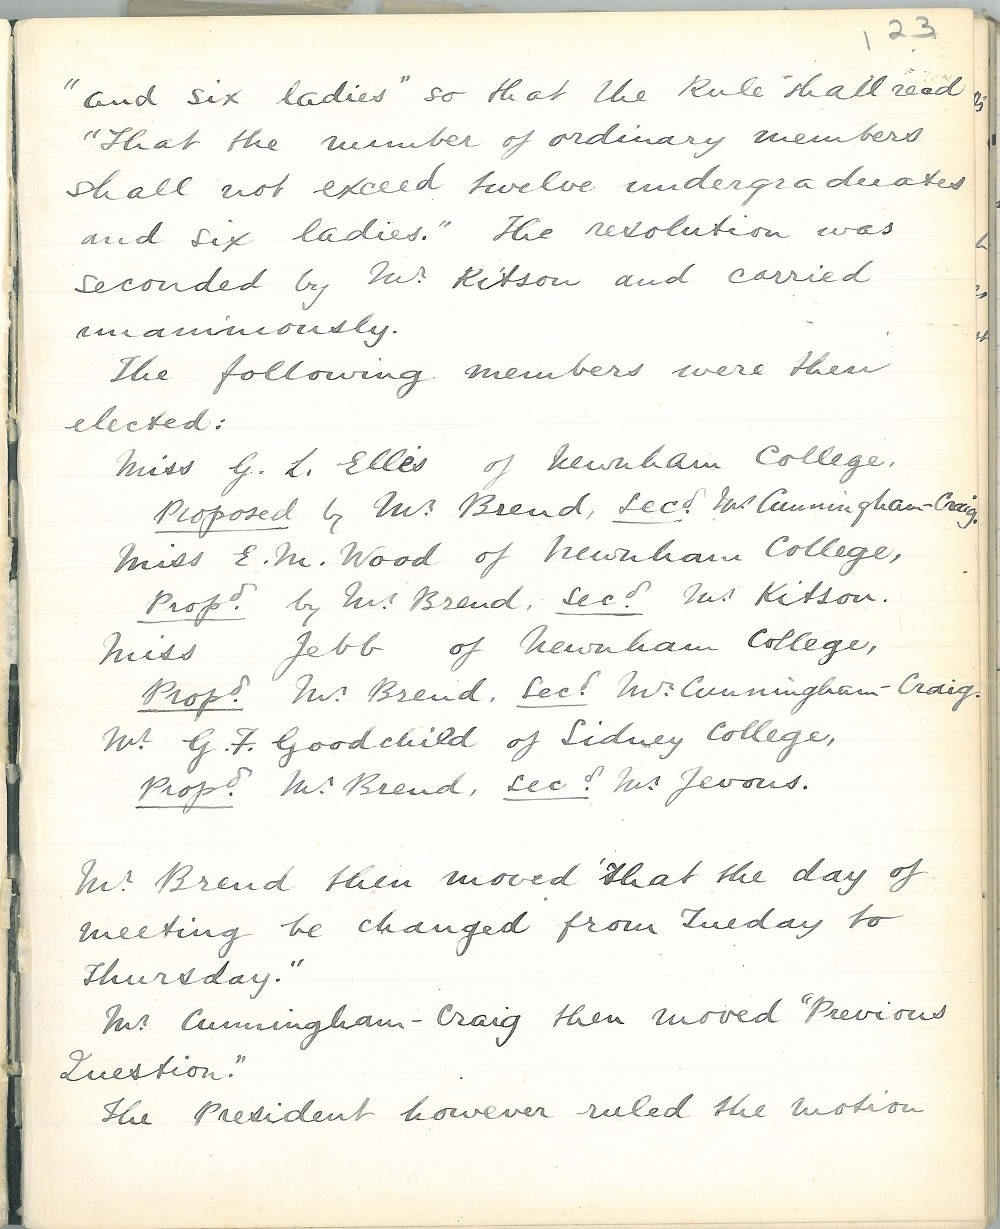 123
"and six ladies" so that the Rule shall read
"That the number of ordinary members
shall not exceed twelve undergraduates
and six ladies." The resolution was
seconded by Mr Kitson and carried
unanimously.
The following members were then
elected:
Miss G. L. Elles of Newnham College.
Proposed by Mr Brend, Secd. Mr Cunningham-Craig.
Miss E. M. Wood of Newnham College,
Propd. by Mr Brend, Secd. Mr Kitson.
Miss Jebb of Newnham College,
Propd. Mr Brend, Secd. Mr Cunningham-Craig.
Mr G. F. Goodchild of Sidney College,
Propd. Mr Brend, Secd. Mr Jevons.
Mr Brend then moved "That the day of
meeting be changed from Tueday to
Thursday."
Mr Cunningham-Craig then moved "Previous
Question."
The President however ruled the motion